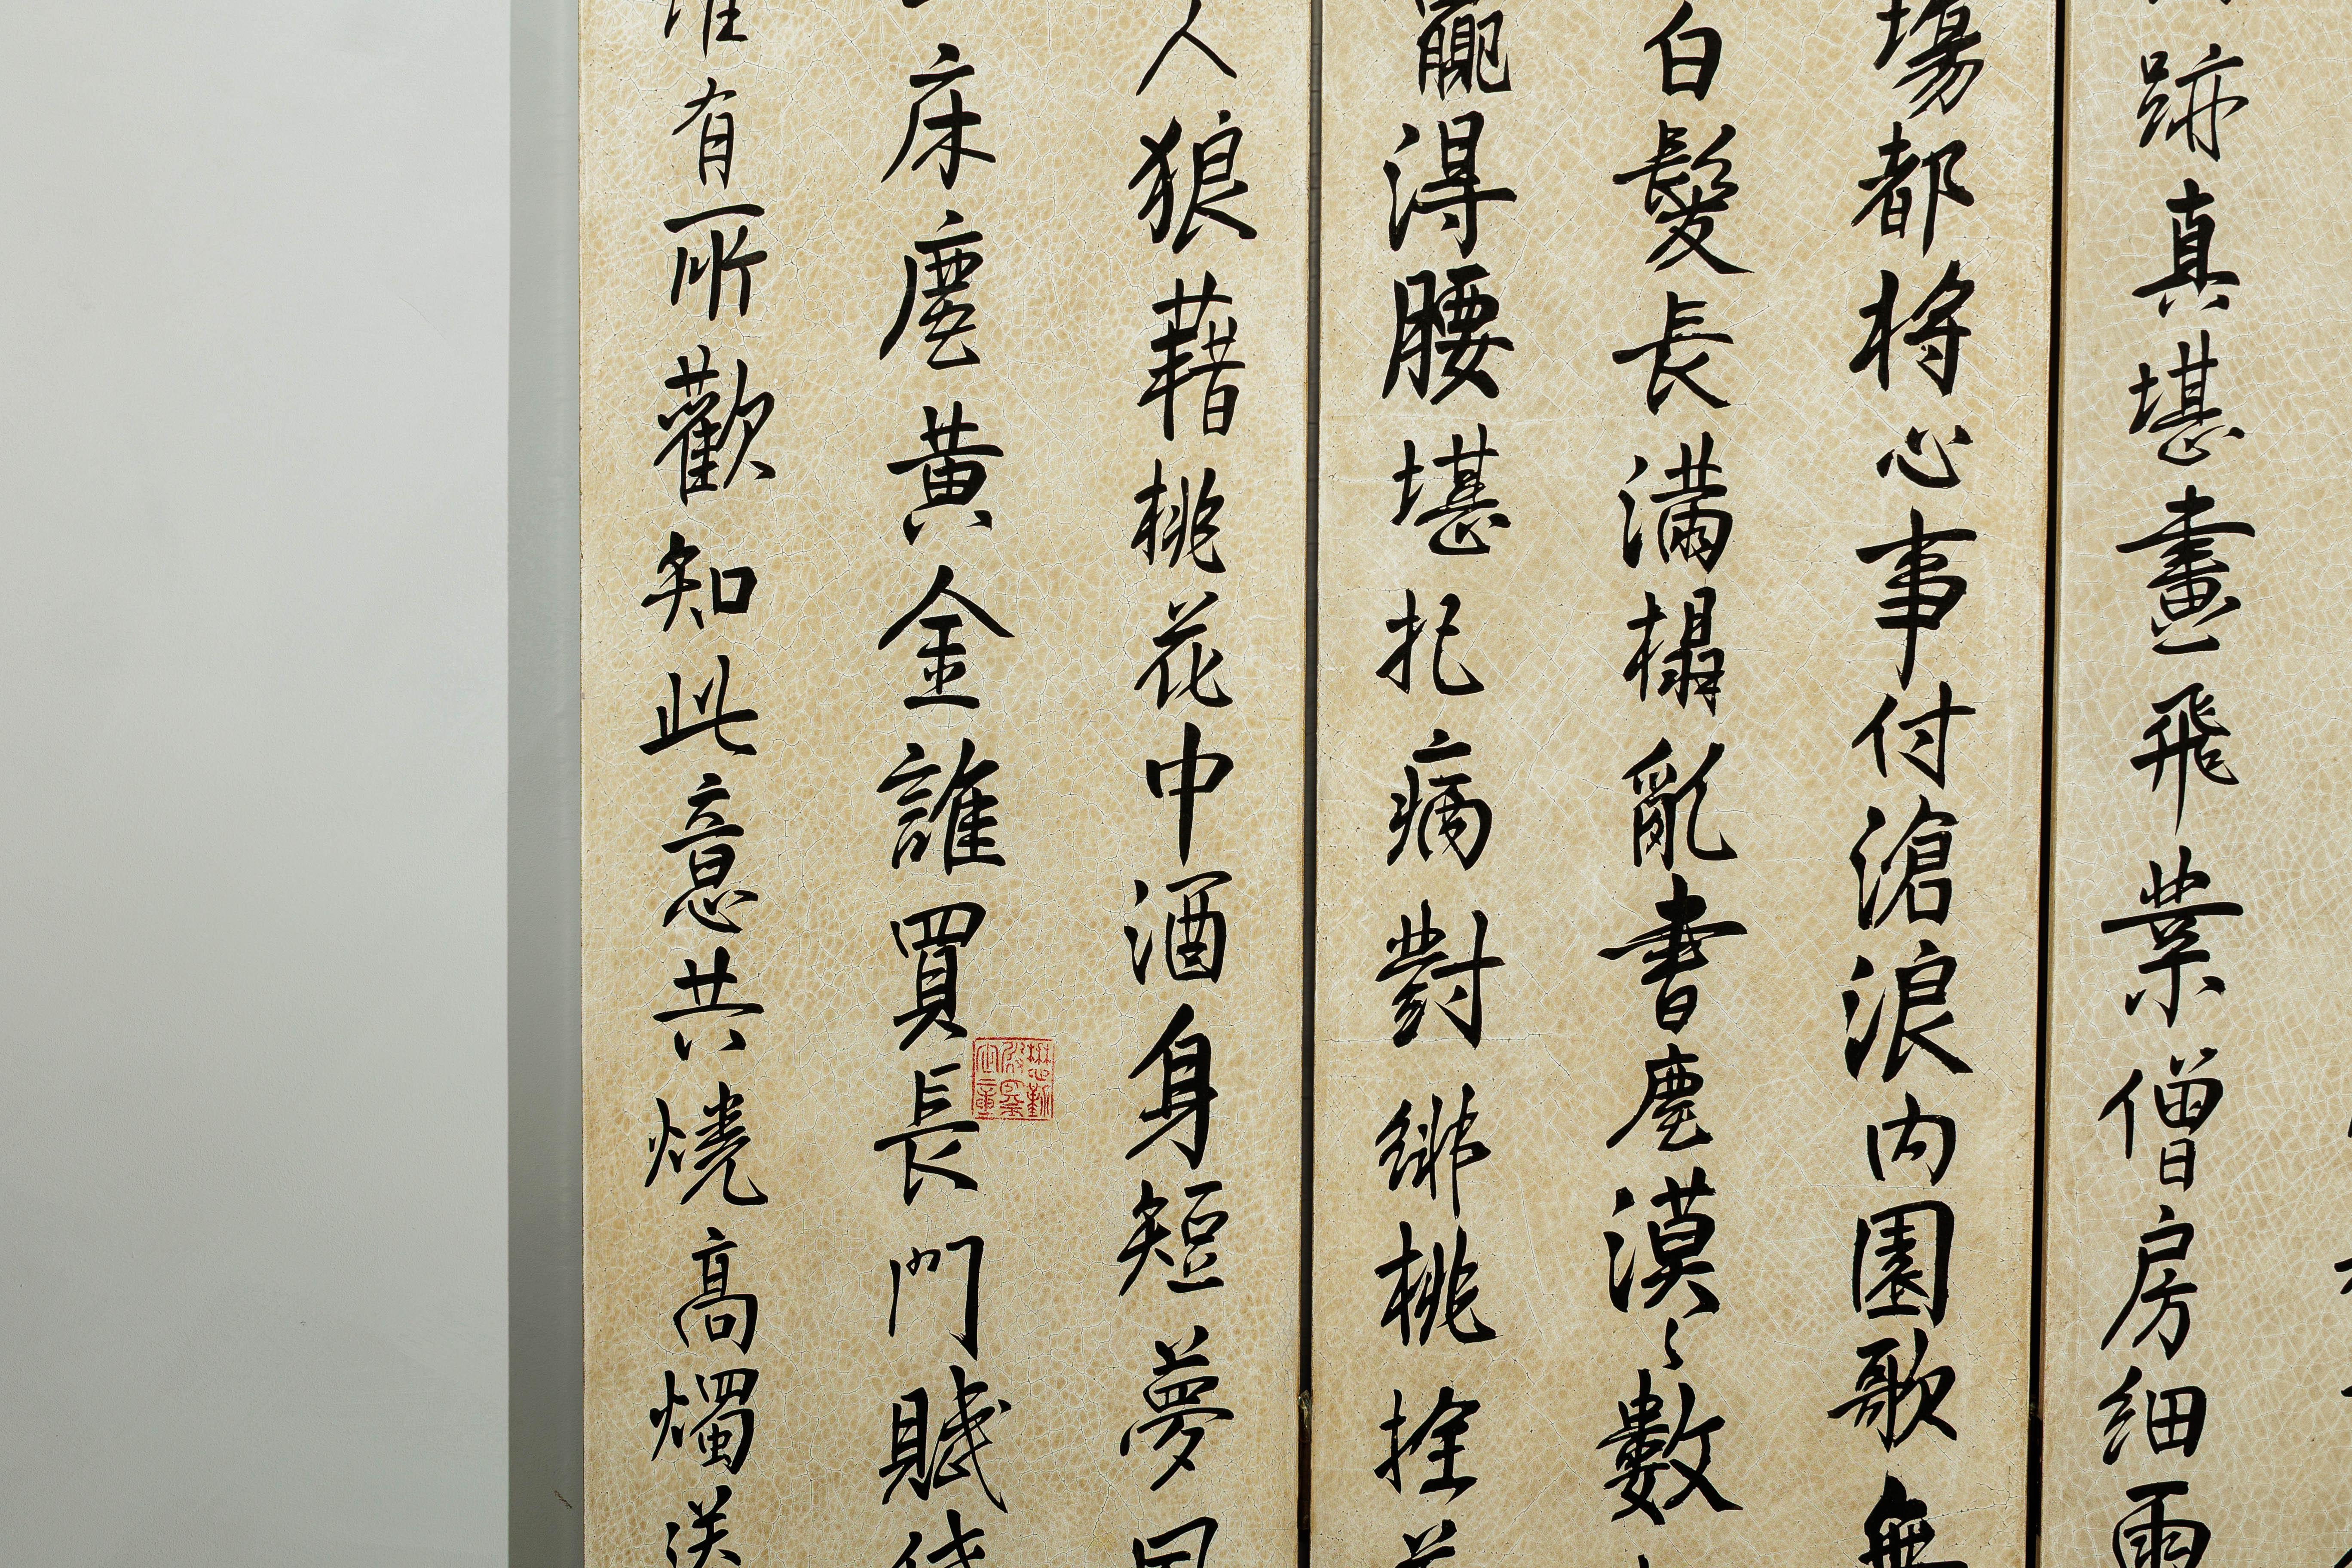 跡真堪畫飛葉僧房細雨
場都将心事付滄浪内園歌無
白髮長滿榻亂書塵漠々數
贏得腰堪把病對緋桃拴
人狼藉桃花中酒身短夢
床塵黃金誰買長門賦
有所歡知此意共燒高燭送